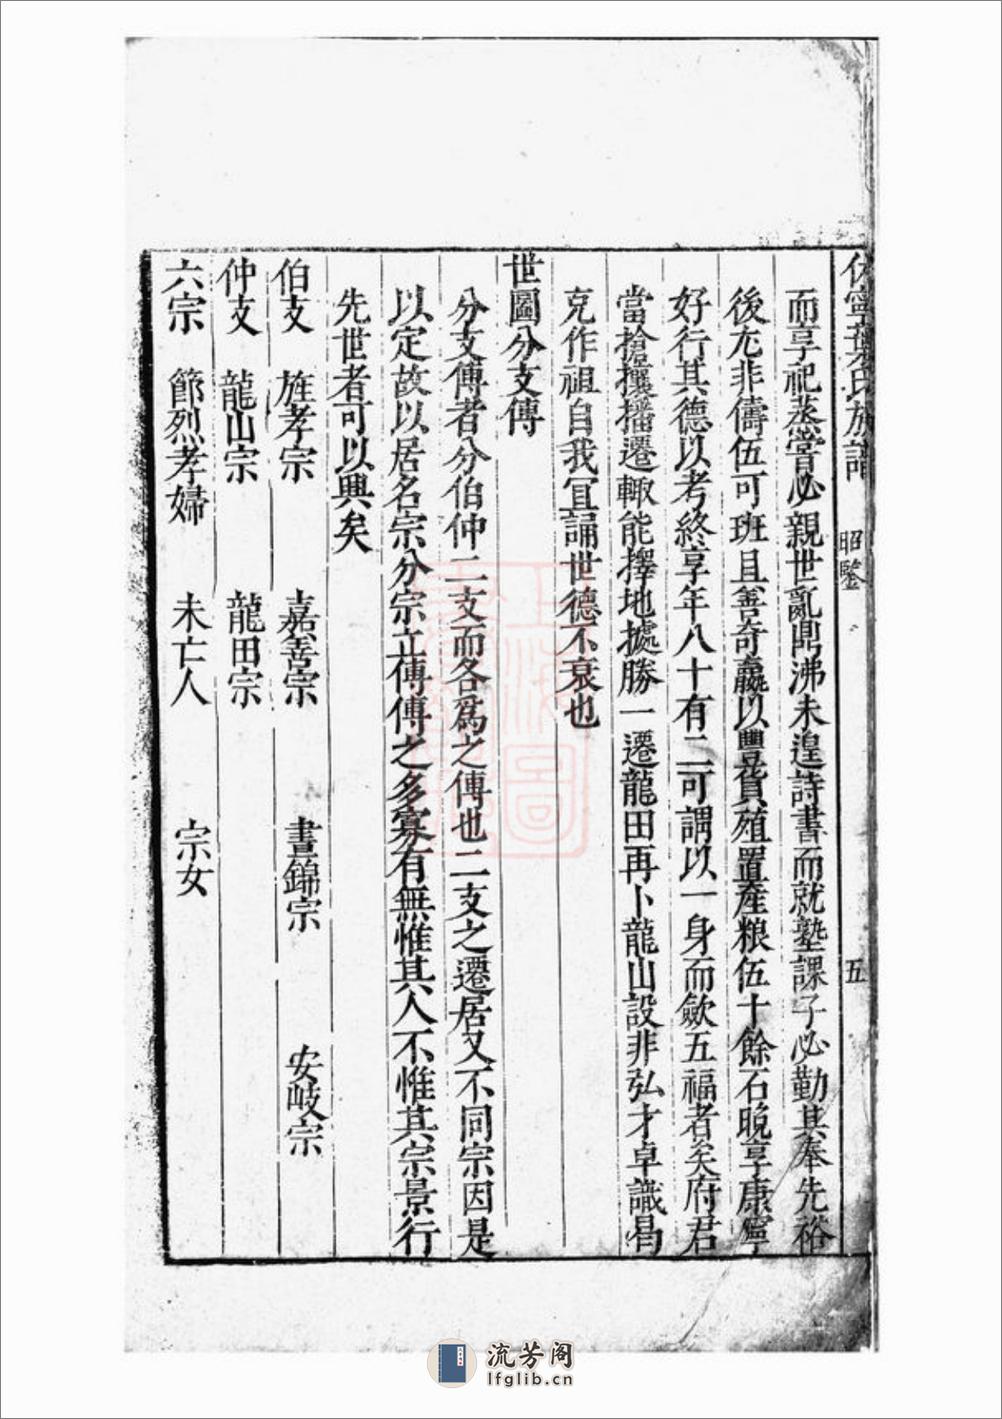 休寧葉氏族譜 昭鑒 五
而享祀蒸嘗必親世亂鼎沸未遑詩書而就塾課子必勤其奉先裕
後尤非儔伍可班且善奇羸以豐貨殖置產粮伍十餘石晚享康寧
好行其德以考終享年八十有二可謂以一身而歛五福者矣府君
當搶攘播遷輙能擇地據勝一遷龍田再卜龍山設非弘才卓識曷
克作祖自我冝誦世德不衰也
世圖分支傳
分支傳者分伯仲二支而各爲之傳也二支之遷居又不同宗因是
以定故以居名宗分宗立傳傳之多寡有無惟其人不惟其宗景行
先世者可以興矣
伯支 旌孝宗 嘉善宗 晝錦宗 安岐宗
仲支 龍山宗 龍田宗
六宗 節烈孝婦 未亡人 宗女
上海圖
流芳阁
lfglib.cn